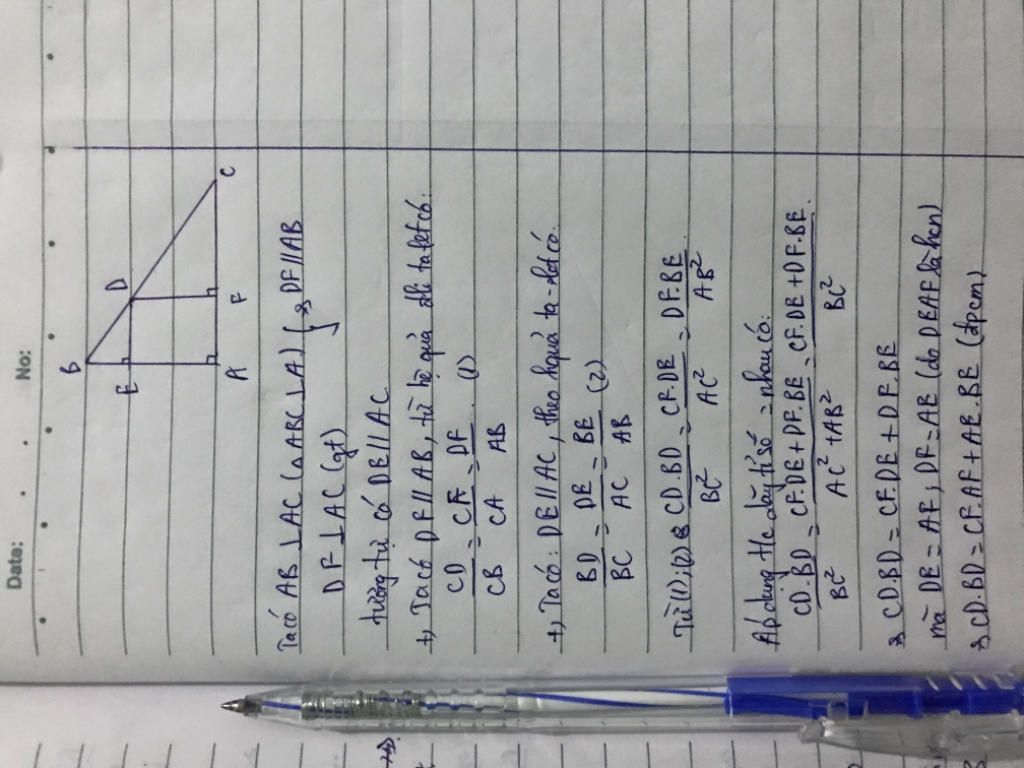 Date: . No:
B
D
E
A
F
C
Ta có AB ⊥ AC (△ABC ⊥ A) } => DF // AB
DF ⊥ AC (gt)
tương tự có DE // AC
+, Ta có DF // AB, từ hệ quả đlí ta lét có:
CD/CB = CF/CA = DF/AB (1)
+, Ta có: DE // AC, theo hquả ta-lét có.
BD/BC = DE/AC = BE/AB (2)
Từ (1); (2) => CD.BD/BC² = CF.DE/AC² = DF.BE/AB²
Áp dụng t/c dãy tỉ số = nhau có:
CD.BD/BC² = CF.DE + DF.BE/AC² + AB² = CF.DE + DF.BE/BC².
=> CD.BD = CF.DE + DF.BE
mà DE = AF; DF = AE (do DEAF là hcn)
=> CD.BD = CF.AF + AE.BE (đpcm)